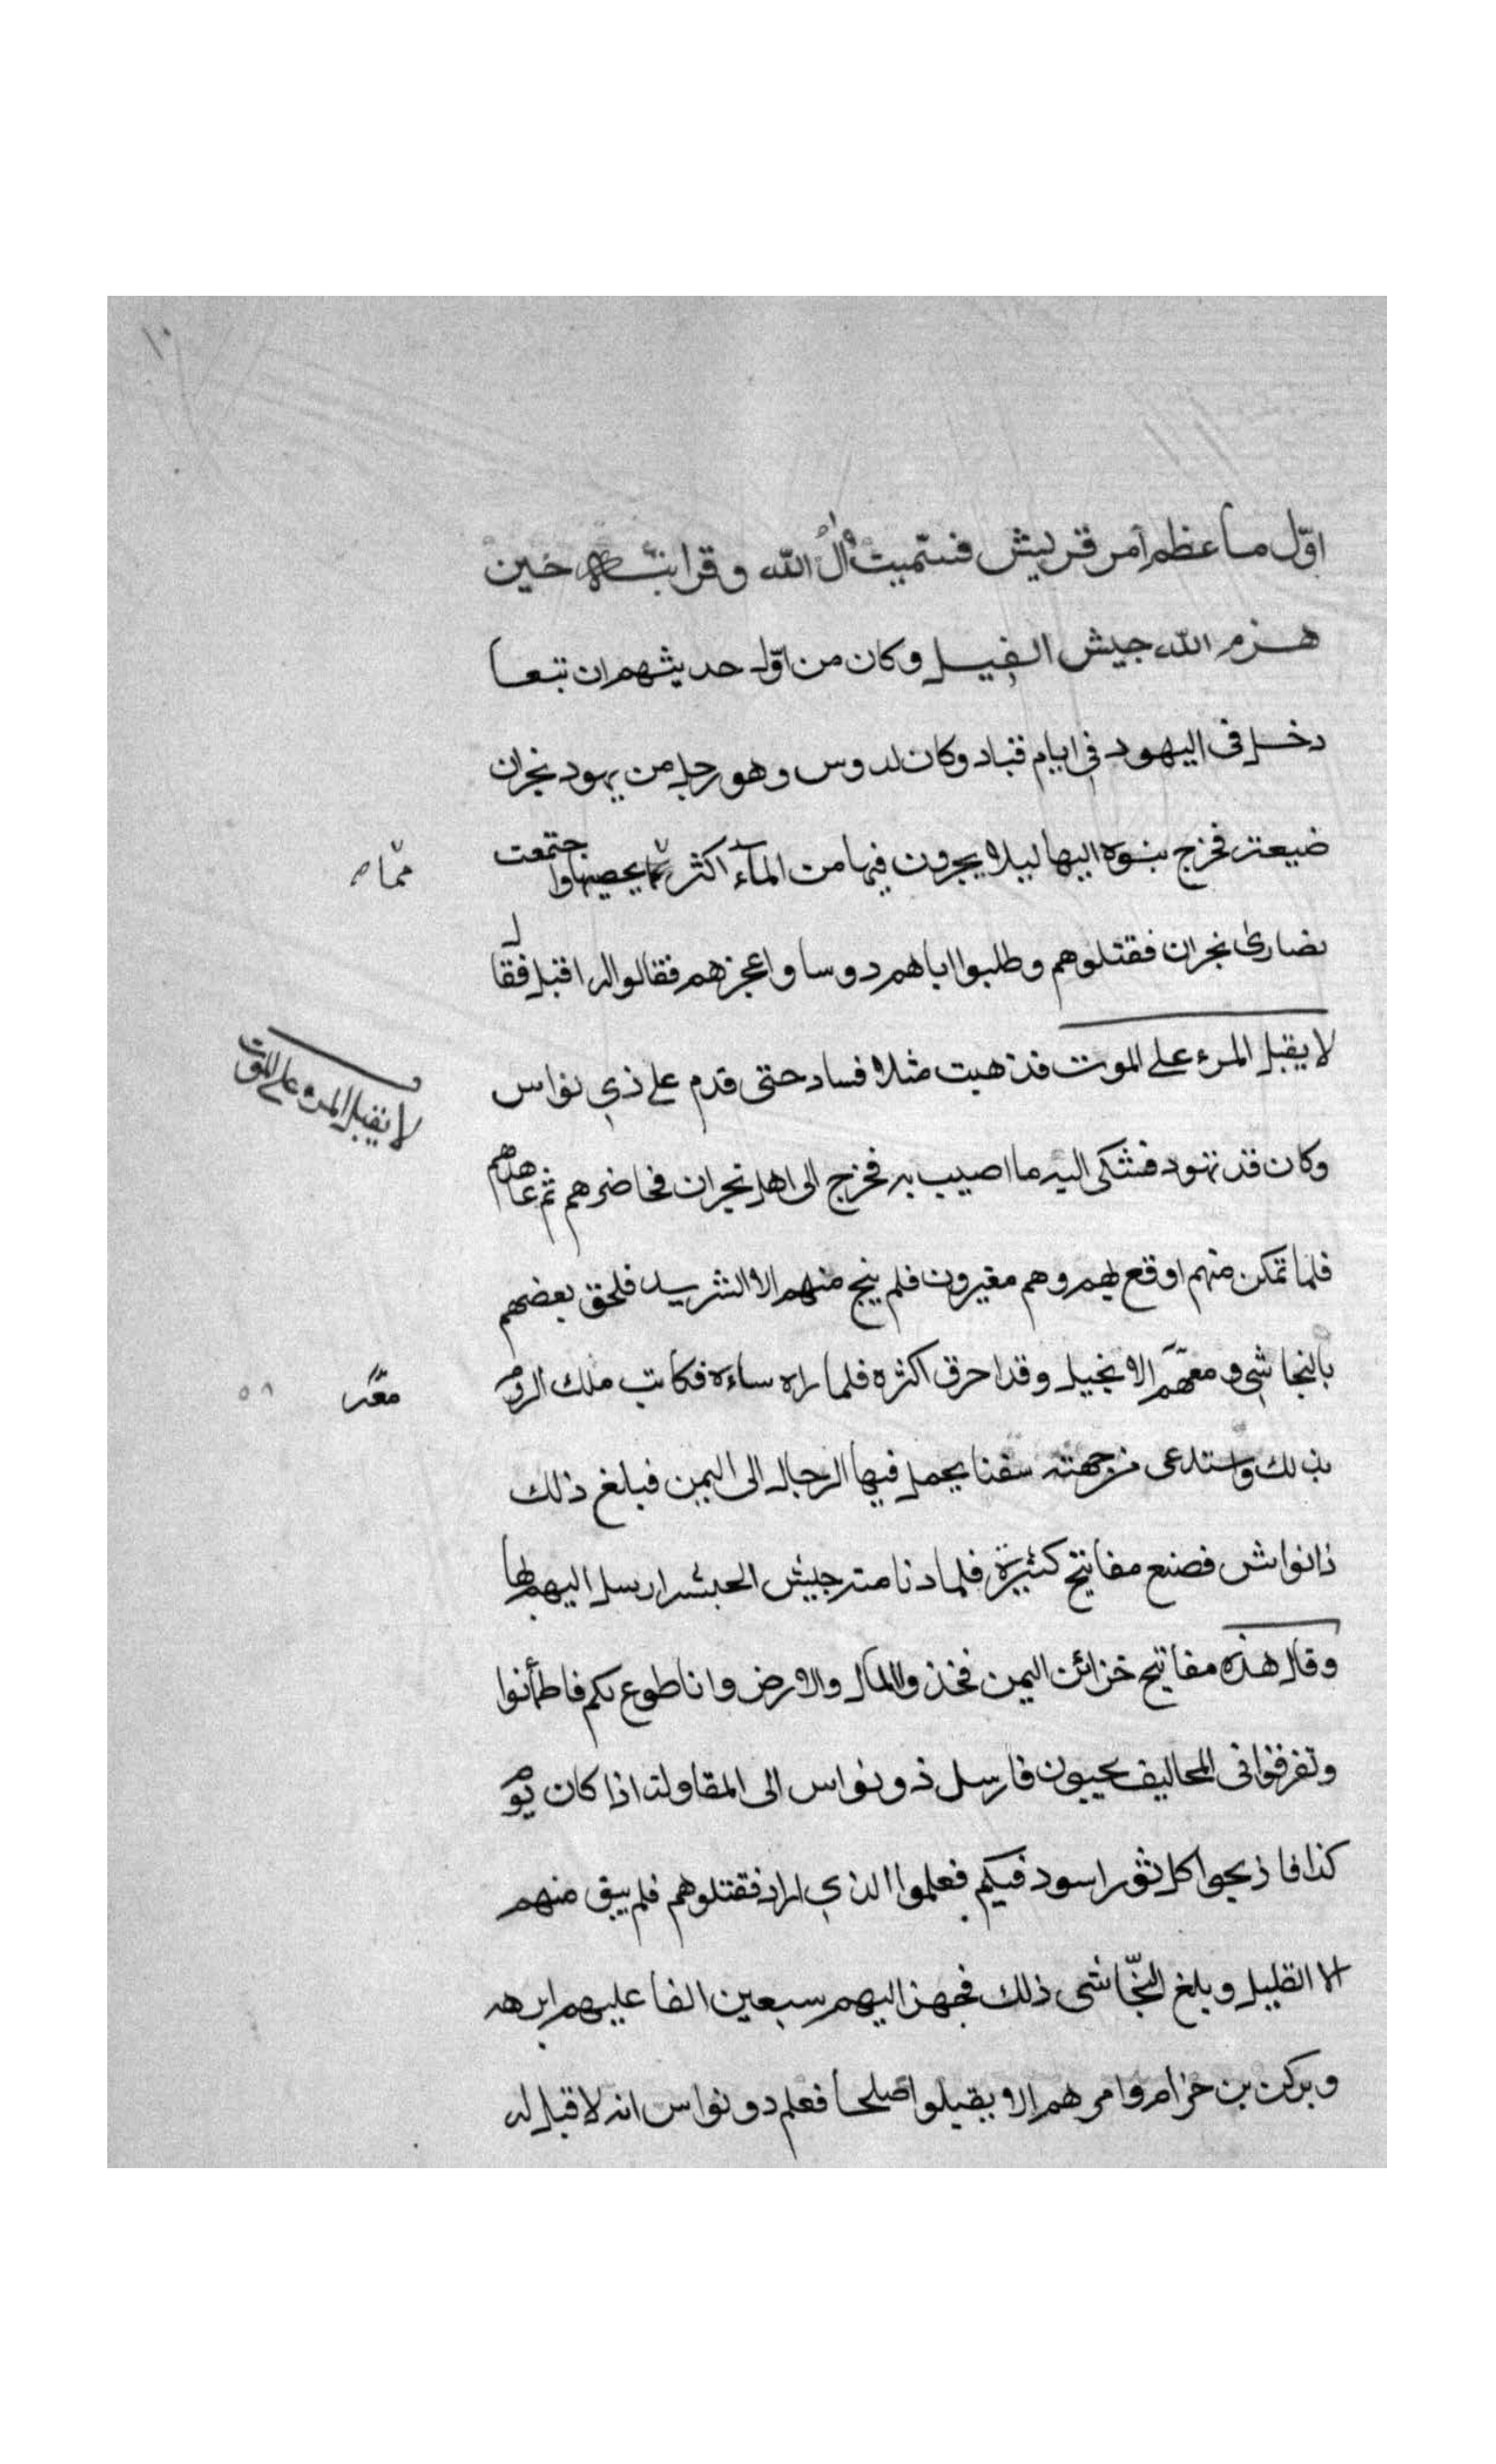 ١٠
اوّل ما عظم امر قريش فسمّيت اٰلُ الله وقرابته حين
هزم الله جيش الفيل وكان من اوّل حديثهم ان تبعا
دخل فى اليهود فى ايام قباد وكان لدوس وهو رجل من يهود نجران
ضيعة فخرج بنوه اليها ليلا يجرون فيها من المآء اكثر ممّا يحصيها واجتمعت
ممّا صه
نصارى نجران فقتلوهم وطلبوا اباهم دوسا واعجزهم فقالوا له اقبل فقال
لا يقبل المرء على الموت فذهبت مثلا فساد حتى قدم على ذي نواس
لا يقبل المرء على الموت
وكان قد تهود فشكى اليه ما اصيب به فخرج الى اهل نجران فحاضرهم ثم عاهدهم
فلما تمكن منهم اوقع بهم وهم مغيرون فلم ينج منهم الا الشريد فلحق بعضهم
بالنجاشي ومعهم الانجيل وقد احرق اكثره فلما راه ساءه فكاتب ملك الروم
بذلك واستدعى من جهته سفنا يحمل فيها الرجال الى اليمن فبلغ ذلك
ذا نواس فصنع مفاتيح كثيرة فلما دنا منه جيش الحبشه ارسل اليهم بها
وقال هذه مفاتيح خزائن اليمن فخذوا المال والارض وانا طوع لكم فاطمأنوا
وتفرقوا فى المحاليف يجيبون فارسل ذو نواس الى المقاولة اذا كان يوم
كذا فاذبحوا كل ثور اسود فيكم فعلموا الذي اراد فقتلوهم فلم يبق منهم
الا القليل وبلغ النجّاشى ذلك فجهز اليهم سبعين الفا عليهم ابرهه
وبركن بن حزام وامرهم الا يقبلوا صلحا فعلم دو نواس انه لا قبل له